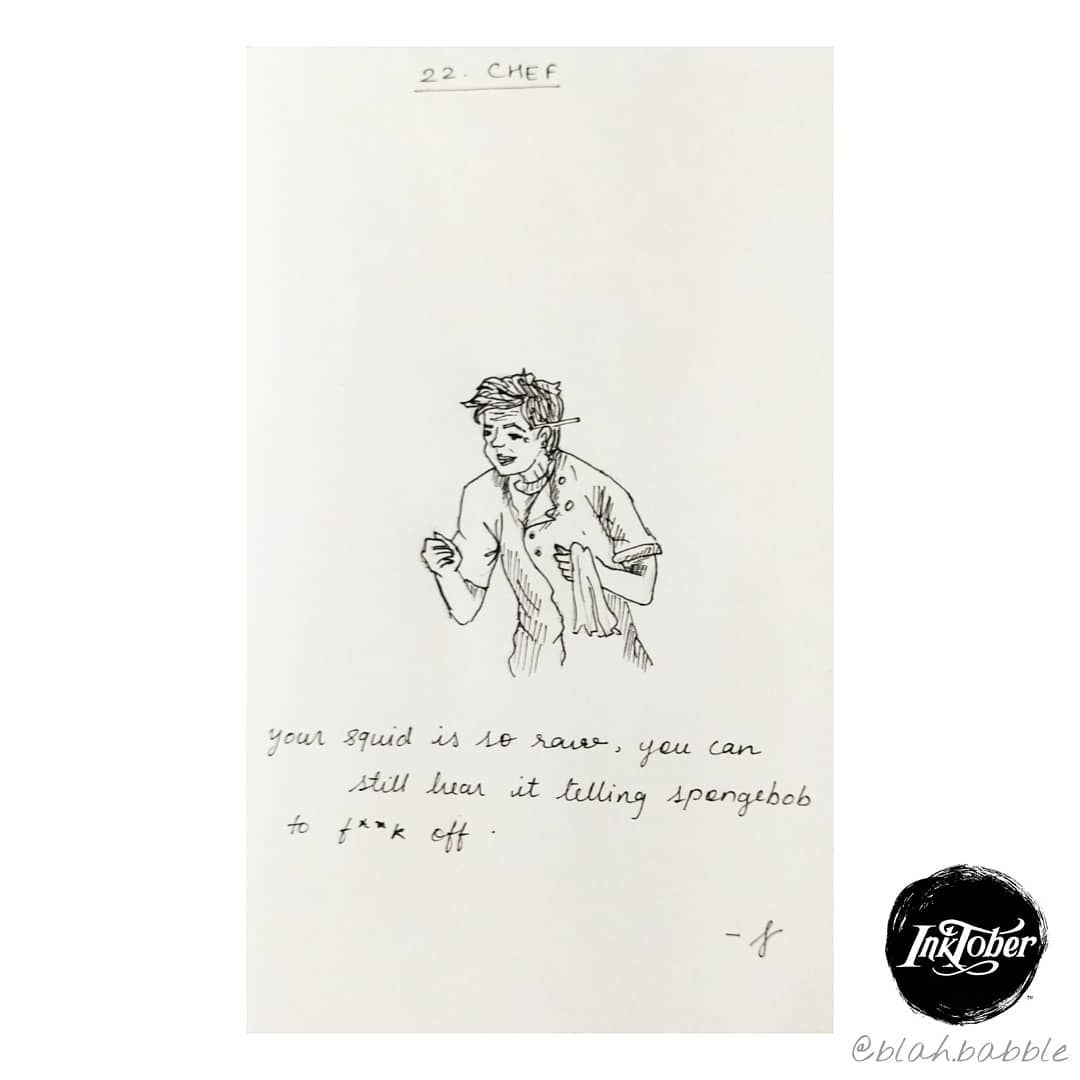 22. CHEF
your squid is so raw, you can
still hear it telling spongebob
to f**k off.
- f
INKTOBER
TM
@blah.babble